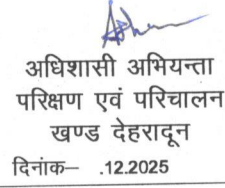 अधिशासी अभियन्ता
परिक्षण एवं परिचालन
खण्ड देहरादून
दिनांक– .12.2025